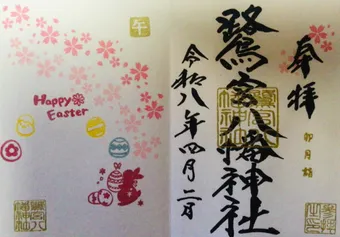 奉拝
卯月詣
鷺宮八幡神社
令和八年四月二日
午
Happy
Easter